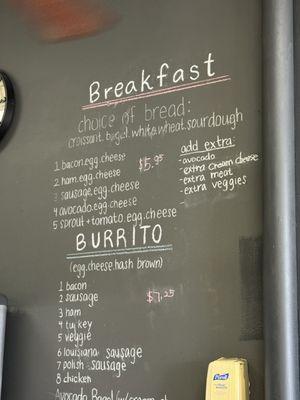 Breakfast
choice of bread:
croissant. bagel. white. wheat. sourdough
1 bacon.egg.cheese
2 ham.egg.cheese
3 sausage.egg.cheese
4 avocado.egg.cheese
5 sprout+tomato.egg.cheese
$5.95
add extra:
-avocado
-extra cream cheese
-extra meat
-extra veggies
BURRITO
(egg.cheese.hash brown)
1 bacon
2 sausage
3 ham
4 turkey
5 veggie
6 louisiana sausage
7 polish sausage
8 chicken
$7.25
Avocado Bagel (w/cream ch